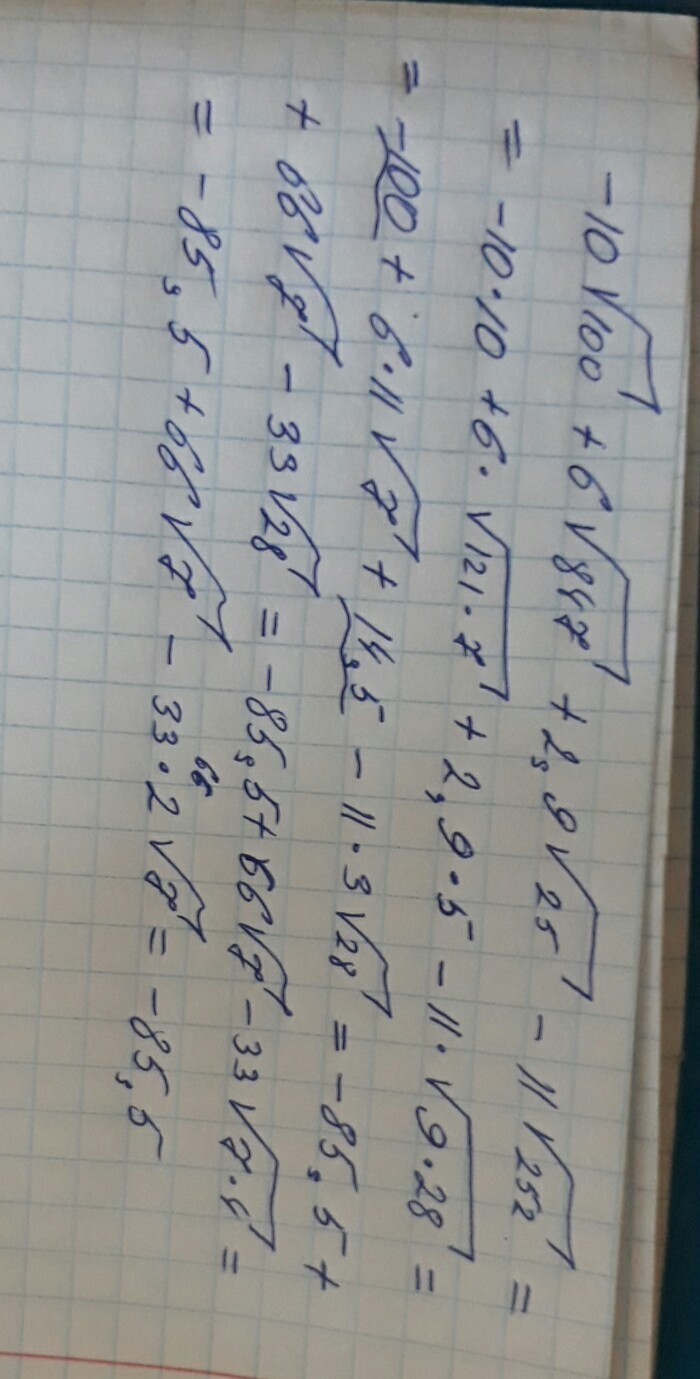 -10√100 + 6√847 + 2,9√25 - 11√252 =
= -10·10 + 6·√121·7 + 2,9·5 - 11·√9·28 =
= -100 + 6·11√7 + 14,5 - 11·3√28 = -85,5 +
+ 66√7 - 33√28 = -85,5 + 66√7 - 33√7·4 =
= -85,5 + 66√7 - 33·2√7 = -85,5
66